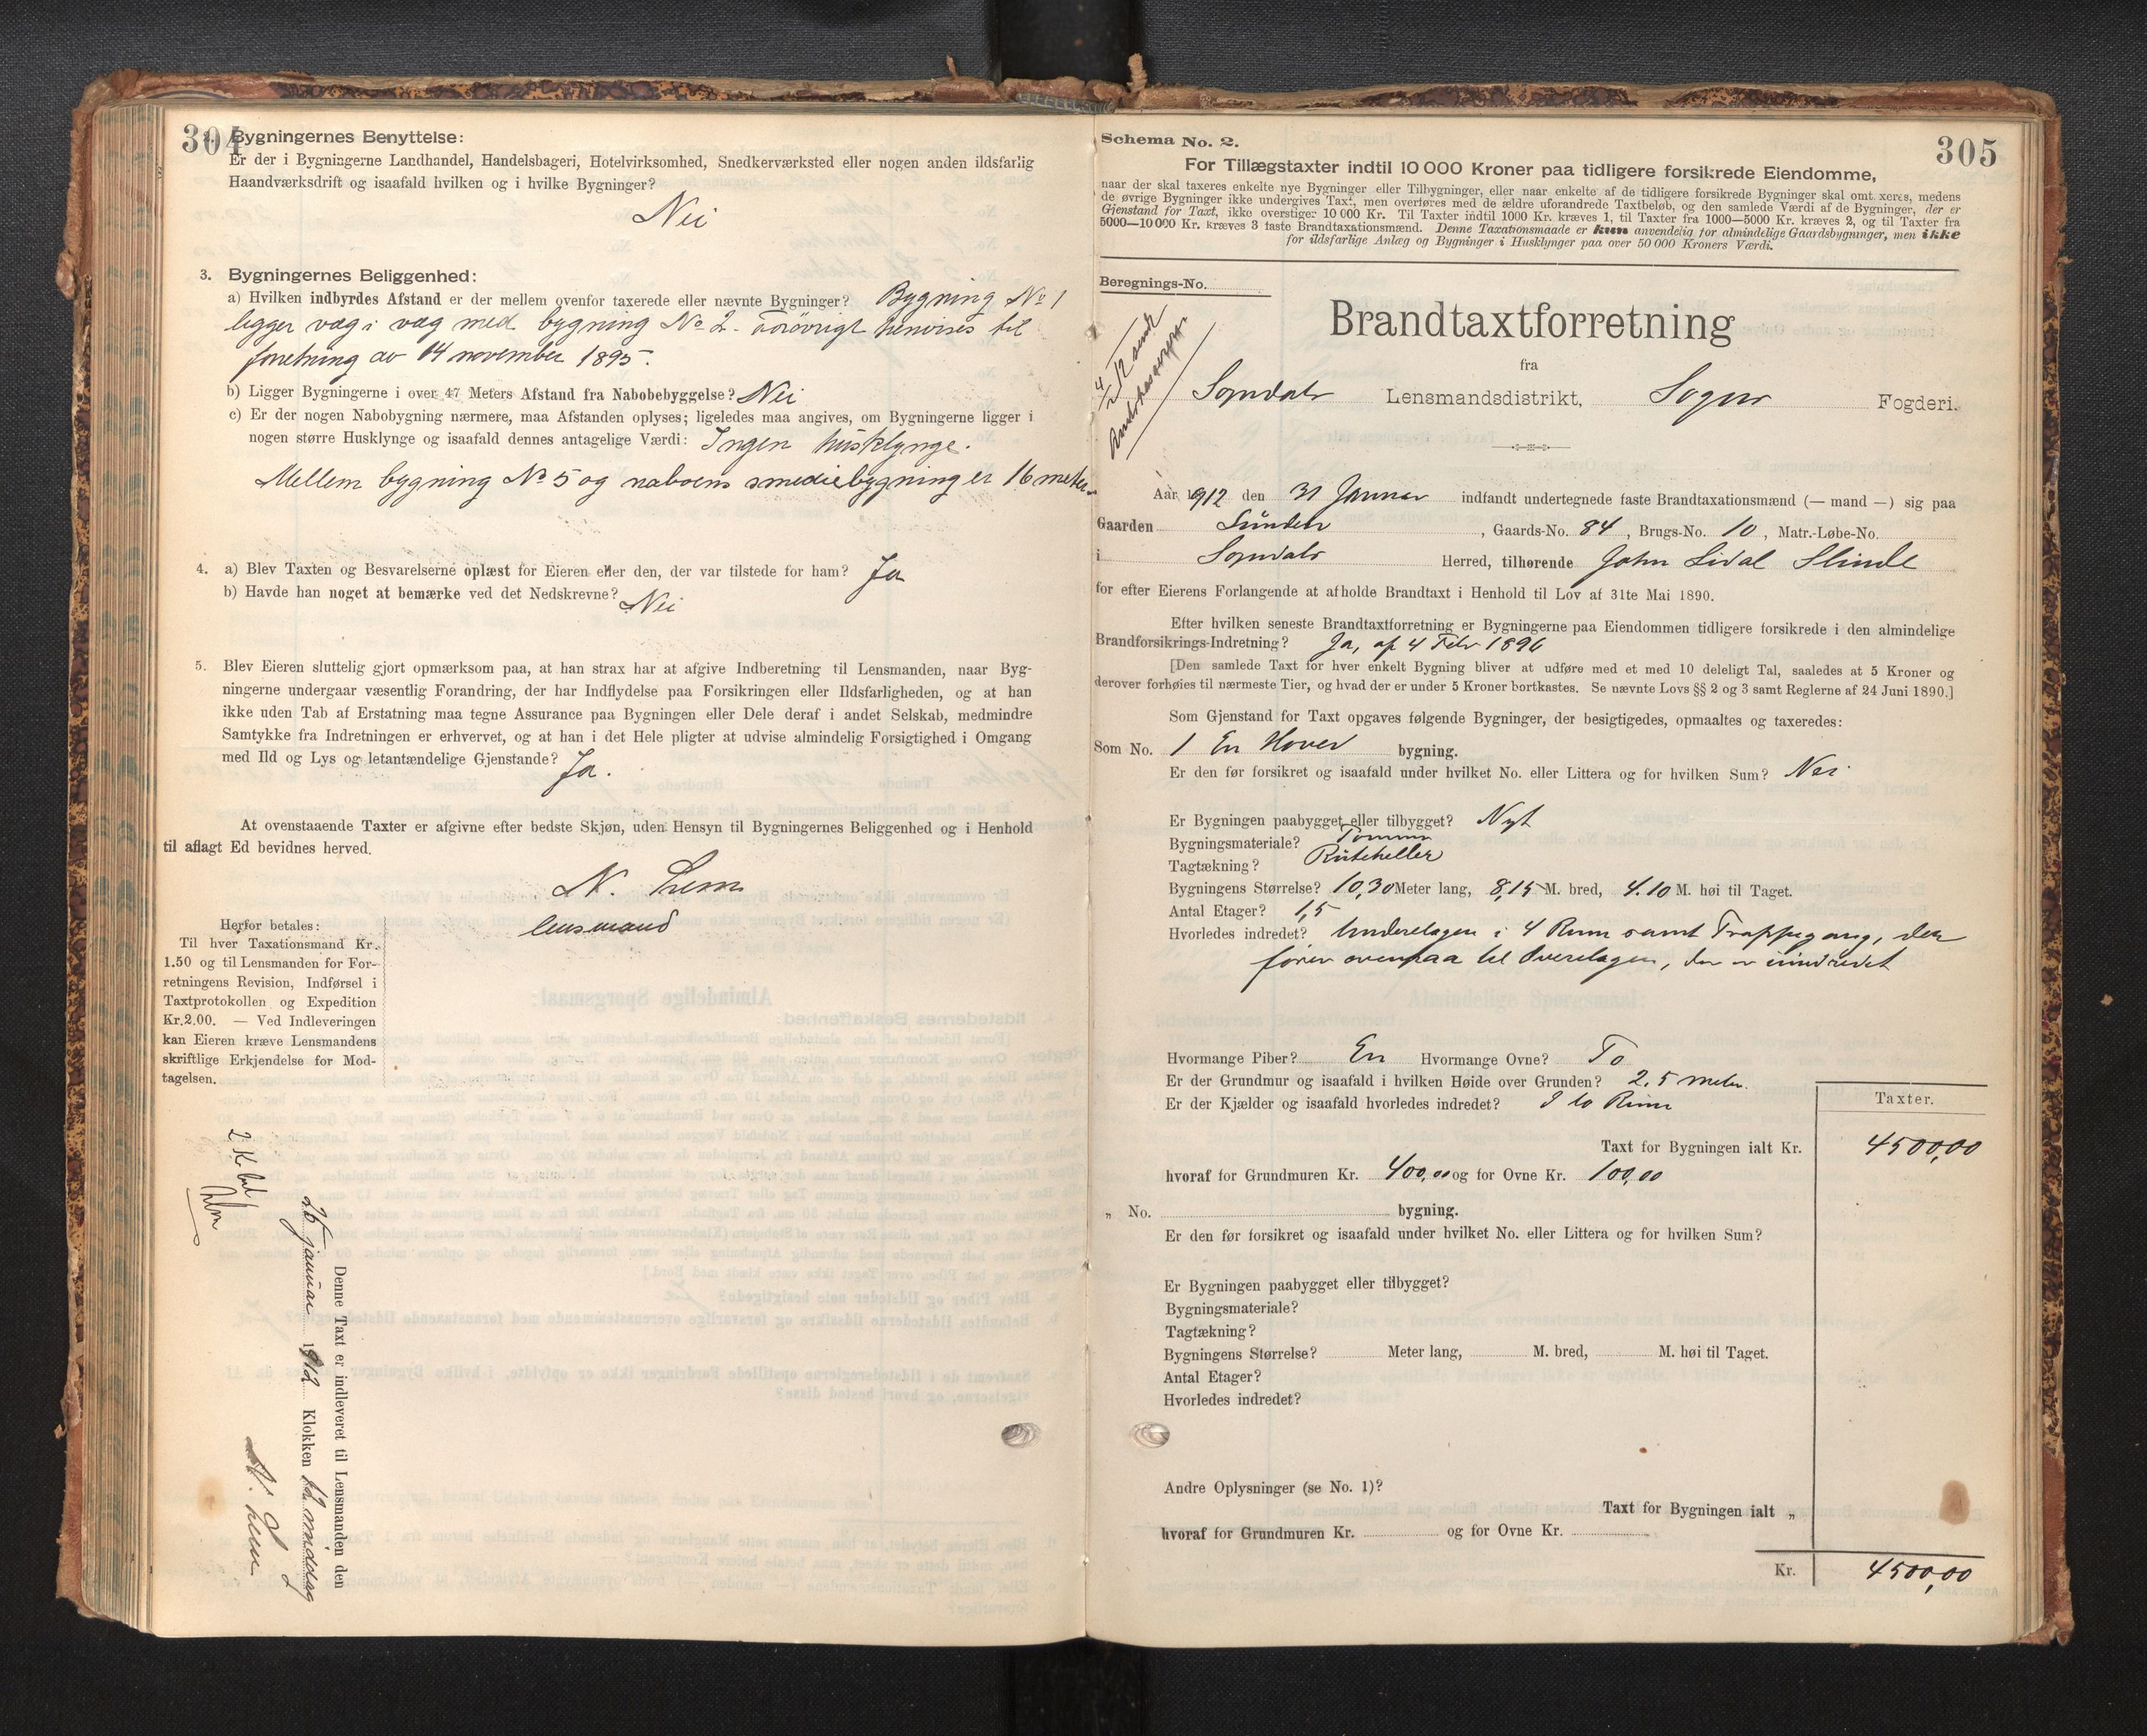 304
Bygningernes Benyttelse:
Er der i Bygningerne Landhandel, Handelsbageri, Hotelvirksomhed, Snedkerværksted eller nogen anden ildsfarlig
Haandværksdrift og isaafald hvilken og i hvilke Bygninger?
Nei
3. Bygningernes Beliggenhed:
a) Hvilken indbyrdes Afstand er der mellem ovenfor taxerede eller nævnte Bygninger? Bygning No 1
ligger væg i væg med bygning No 2. Forøvrigt henvises til
forretning av 14 november 1895.
b) Ligger Bygningerne i over 47 Meters Afstand fra Nabobebyggelse? Nei
c) Er der nogen Nabobygning nærmere, maa Afstanden oplyses; ligeledes maa angives, om Bygningerne ligger i
nogen større Husklynge og isaafald dennes antagelige Værdi: Ingen husklynge.
Mellem bygning No 5 og naboens smediebygning er 16 meter.
4. a) Blev Taxten og Besvarelserne oplæst for Eieren eller den, der var tilstede for ham? Ja
b) Havde han noget at bemærke ved det Nedskrevne? Nei
5. Blev Eieren sluttelig gjort opmærksom paa, at han strax har at afgive Indberetning til Lensmanden, naar Byg-
ningerne undergaar væsentlig Forandring, der har Indflydelse paa Forsikringen eller Ildsfarligheden, og at han
ikke uden Tab af Erstatning maa tegne Assurance paa Bygningen eller Dele deraf i andet Selskab, medmindre
Samtykke fra Indretningen er erhvervet, og at han i det Hele pligter at udvise almindelig Forsigtighed i Omgang
med Ild og Lys og letantændelige Gjenstande? Ja.
At ovenstaaende Taxter er afgivne efter bedste Skjøn, uden Hensyn til Bygningernes Beliggenhed og i Henhold
til aflagt Ed bevidnes herved.
N. Lem
lensmand
Herfor betales:
Til hver Taxationsmand Kr.
1.50 og til Lensmanden for For-
retningens Revision, Indførsel i
Taxtprotokollen og Expedition
Kr.2.00. — Ved Indleveringen
kan Eieren kræve Lensmandens
skriftlige Erkjendelse for Mod-
tagelsen.
2 Kr bet
Lem
Denne Taxt er indleveret til Lensmanden den
25 januar 1912 Klokken 12 middag
N. Lem
305
Schema No. 2.
For Tillægstaxter indtil 10 000 Kroner paa tidligere forsikrede Eiendomme,
naar der skal taxeres enkelte nye Bygninger eller Tilbygninger, eller naar enkelte af de tidligere forsikrede Bygninger skal omt xeres, medens
de øvrige Bygninger ikke undergives Taxt, men overføres med de ældre uforandrede Taxtbeløb, og den samlede Værdi af de Bygninger, der er
Gjenstand for Taxt, ikke overstiger 10 000 Kr. Til Taxter indtil 1000 Kr. kræves 1, til Taxter fra 1000—5000 Kr. kræves 2, og til Taxter fra
5000—10 000 Kr. kræves 3 faste Brandtaxationsmænd. Denne Taxationsmaade er kun anvendelig for almindelige Gaardsbygninger, men ikke
for ildsfarlige Anlæg og Bygninger i Husklynger paa over 50 000 Kroners Værdi.
Beregnings-No.
Brandtaxtforretning
fra
Sogndals Lensmandsdistrikt, Sogns Fogderi.
Aar 1912 den 31 Januar indfandt undertegnede faste Brandtaxationsmænd (— mand —) sig paa
Gaarden Slinden, Gaards-No. 84, Brugs-No. 10, Matr.-Løbe-No.
i Sogndals Herred, tilhørende John Lidal Slinde
for efter Eierens Forlangende at afholde Brandtaxt i Henhold til Lov af 31te Mai 1890.
Efter hvilken seneste Brandtaxtforretning er Bygningerne paa Eiendommen tidligere forsikrede i den almindelige
Brandforsikrings-Indretning? Ja, af 4 Febr 1896
[Den samlede Taxt for hver enkelt Bygning bliver at udføre med et med 10 deleligt Tal, saaledes at 5 Kroner og
derover forhøies til nærmeste Tier, og hvad der er under 5 Kroner bortkastes. Se nævnte Lovs §§ 2 og 3 samt Reglerne af 24 Juni 1890.]
Som Gjenstand for Taxt opgaves følgende Bygninger, der besigtigedes, opmaaltes og taxeredes:
Som No. 1 En Hoved bygning.
Er den før forsikret og isaafald under hvilket No. eller Littera og for hvilken Sum? Nei
Er Bygningen paabygget eller tilbygget? Nyt
Bygningsmateriale? Tømmer
Tagtækning? Rüteheller
Bygningens Størrelse? 10,30 Meter lang, 8,15 M. bred, 4.10 M. høi til Taget.
Antal Etager? 1,5
Hvorledes indredet? Underetagen i 4 Rum samt Trappegang, der
fører ovenpaa til Overetagen, der er uindredet
Hvormange Piber? En Hvormange Ovne? To
Er der Grundmur og isaafald i hvilken Høide over Grunden? 2.5 meter.
Er der Kjælder og isaafald hvorledes indredet? I to Rum
Taxter.
Taxt for Bygningen ialt Kr. 4500,00
hvoraf for Grundmuren Kr. 400,00 og for Ovne Kr. 100,00
„ No. bygning.
Er den før forsikret og isaafald under hvilket No. eller Littera og for hvilken Sum?
Er Bygningen paabygget eller tilbygget?
Bygningsmateriale?
Tagtækning?
Bygningens Størrelse? Meter lang, M. bred, M. høi til Taget.
Antal Etager?
Hvorledes indredet?
Andre Oplysninger (se No. 1)?
Taxt for Bygningen ialt „
hvoraf for Grundmuren Kr. og for Ovne Kr.
Kr. 4500,00